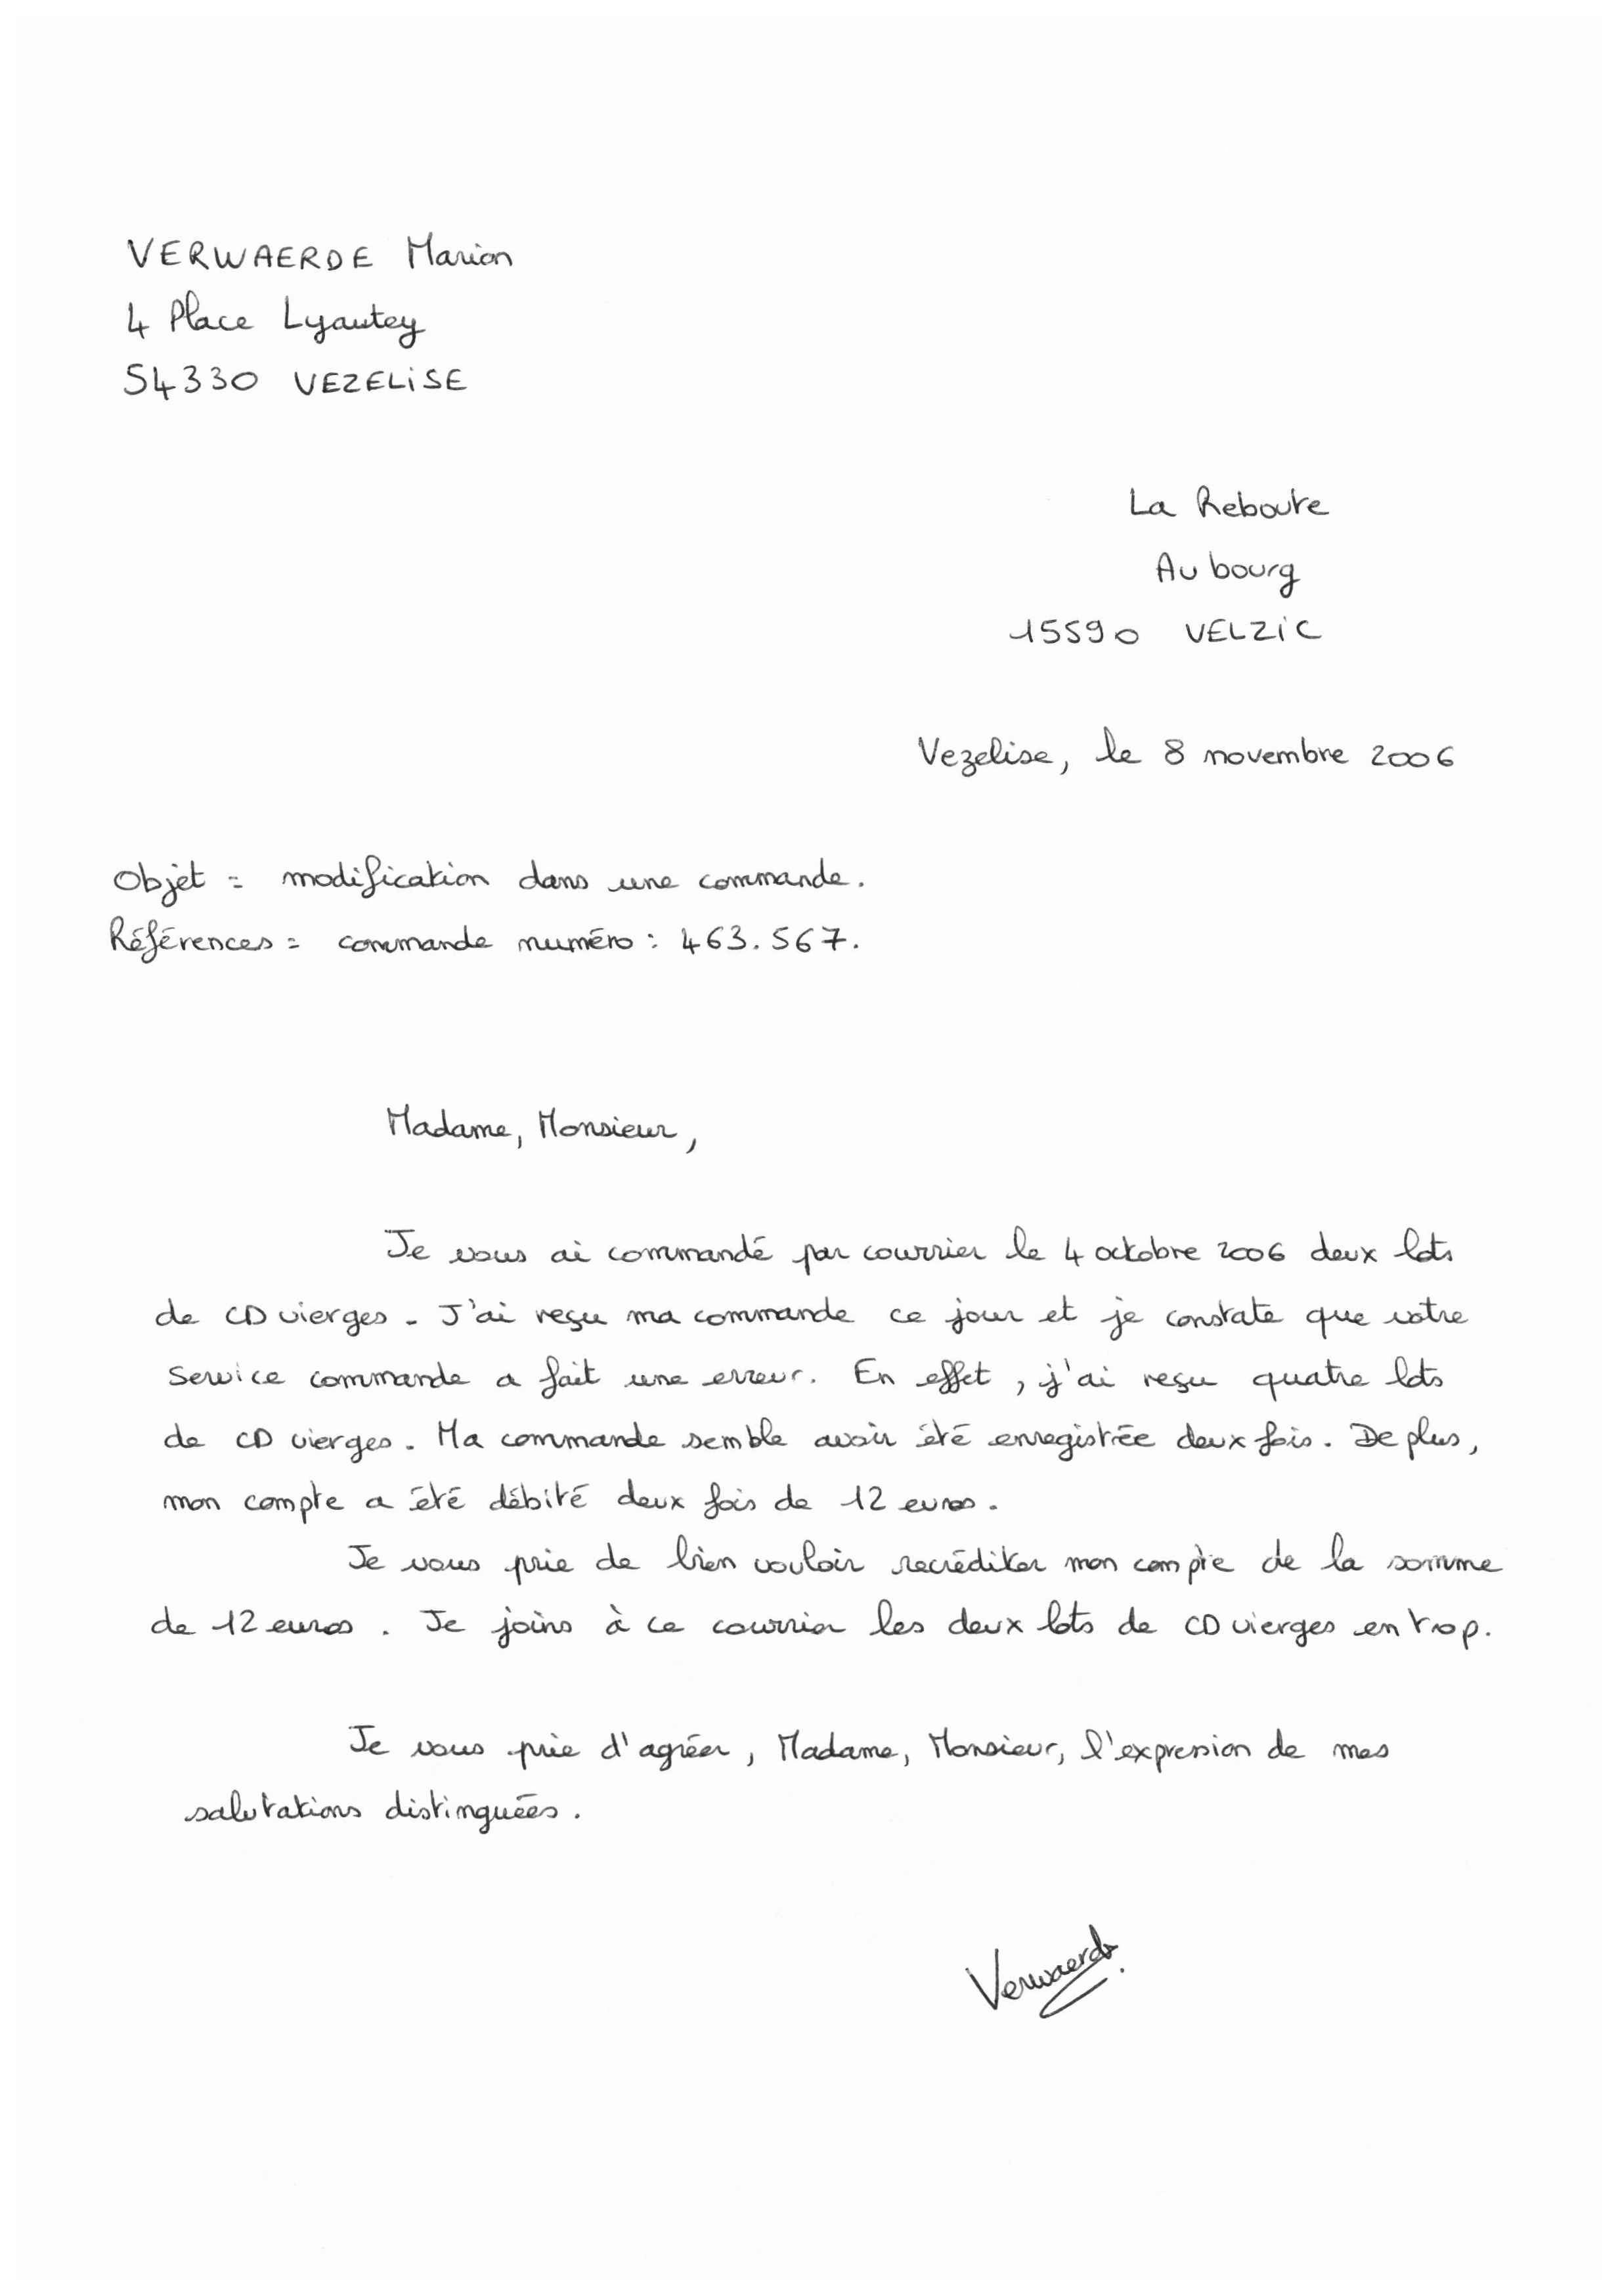 VERWAERDE Marion
4 Place Lyautey
54330 VEZELISE
La Reboute
Au bourg
15590 VELZIC
Vezelise, le 8 novembre 2006
Objet = modification dans une commande.
Références = commande numéro : 463.567.
Madame, Monsieur,
Je vous ai commandé par courrier le 4 octobre 2006 deux lots
de CD vierges. J'ai reçu ma commande ce jour et je constate que votre
service commande a fait une erreur. En effet, j'ai reçu quatre lots
de CD vierges. Ma commande semble avoir été enregistrée deux fois. De plus,
mon compte a été débité deux fois de 12 euros.
Je vous prie de bien vouloir recréditer mon compte de la somme
de 12 euros. Je joins à ce courrier les deux lots de CD vierges en trop.
Je vous prie d'agréer, Madame, Monsieur, l'expression de mes
salutations distinguées.
Verwaerde